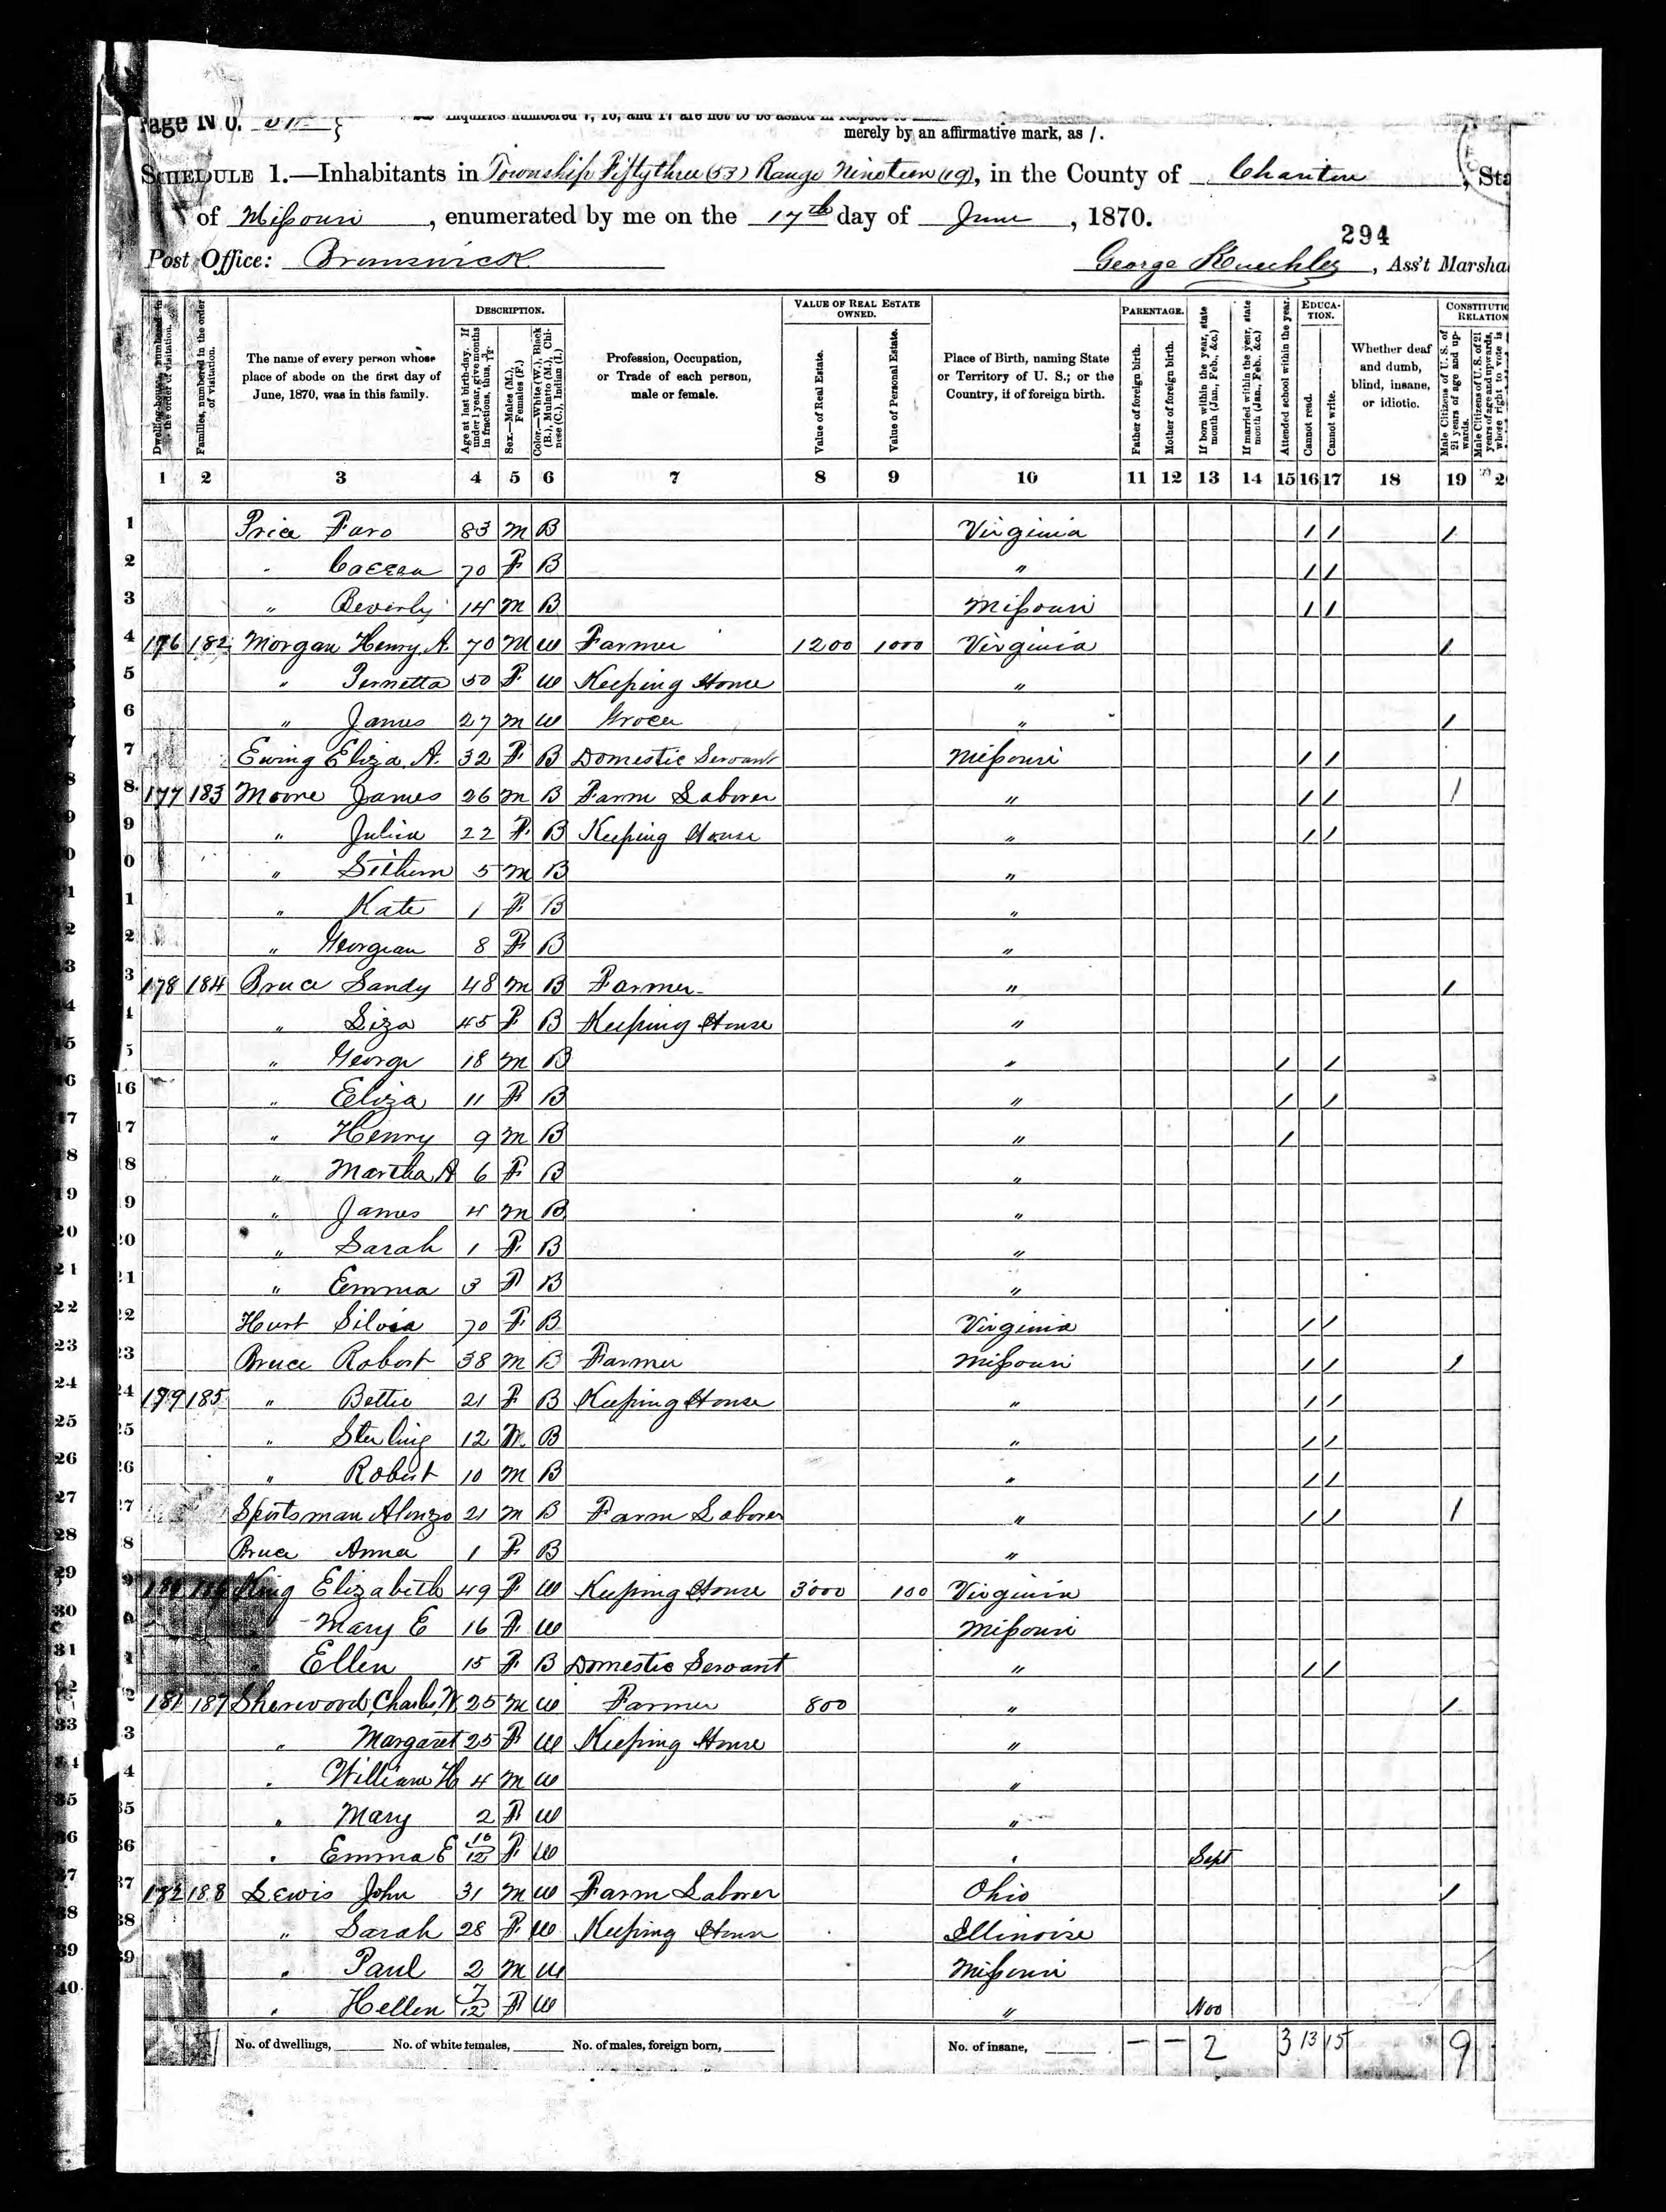 Page No.
Inquiries numbered 7, 16, and 17 are not to be asked in respect to
merely by an affirmative mark, as /.
SCHEDULE 1.—Inhabitants in Township Fifty three (53) Range Nineteen (19), in the County of Chariton, Sta
of Missouri, enumerated by me on the 17th day of June, 1870.
294
Post Office: Brunswick
George Kuechler, Ass't Marsha
Dwelling-houses, numbered in the order of visitation.
Families, numbered in the order of visitation.
The name of every person whose place of abode on the first day of June, 1870, was in this family.
DESCRIPTION.
Age at last birth-day. If under 1 year, give months in fractions, thus, 3/12.
Sex.—Males (M.), Females (F.)
Color.—White (W.), Black (B.), Mulatto (M.), Chinese (C.), Indian (I.)
Profession, Occupation, or Trade of each person, male or female.
VALUE OF REAL ESTATE OWNED.
Value of Real Estate.
Value of Personal Estate.
Place of Birth, naming State or Territory of U. S.; or the Country, if of foreign birth.
PARENTAGE.
Father of foreign birth.
Mother of foreign birth.
If born within the year, state month (Jan., Feb., &c.)
If married within the year, state month (Jan., Feb., &c.)
Attended school within the year.
EDUCATION.
Cannot read.
Cannot write.
Whether deaf and dumb, blind, insane, or idiotic.
CONSTITUTIO
RELATION
Male Citizens of U. S. of 21 years of age and upwards.
Male Citizens of U. S. of 21 years of age and upwards, whose right to vote is
1 2 3 4 5 6 7 8 9 10 11 12 13 14 15 16 17 18 19 2
1 Price Faro 83 M B Virginia / / /
2 " 70 F B " / /
3 " Beverly 14 M B Missouri / /
4 176 182 Morgan Henry A. 70 M W Farmer 1200 1000 Virginia /
5 " 50 F W Keeping House "
6 " James 27 M W Grocer " /
7 Ewing Eliza A. 32 F B Domestic Servant Missouri / /
8 177 183 Moore James 26 M B Farm Laborer " / / /
9 " Julia 22 F B Keeping House " / /
0 " 5 M B "
1 " Kate 1 F B "
2 " Georgean 8 F B "
3 178 184 Bruce Sandy 48 M B Farmer " /
4 " Liza 45 F B Keeping House "
5 " George 18 M B " / /
16 " Eliza 11 F B " / /
17 " Henry 9 M B " /
18 " Martha A 6 F B "
19 " James 4 M B "
20 " Sarah 1 F B "
21 " Emma 3 F B "
22 Hurt Silvia 70 F B Virginia / /
23 Bruce Robert 38 M B Farmer Missouri / / /
24 179 185 " Bettie 21 F B Keeping House " / /
25 " Sterling 12 M B " / /
26 " Robert 10 M B " / /
27 Sportsman Alonzo 21 M B Farm Laborer " / / /
8 Bruce Anna 1 F B "
9 180 186 King Elizabeth 49 F W Keeping House 3000 100 Virginia
0 " Mary E 16 F W Missouri
1 " Ellen 15 F B Domestic Servant " / /
2 181 187 Sherwood, Charles W. 25 M W Farmer 800 " /
3 " Margaret 25 F W Keeping House "
4 " William H 4 M W "
35 " Mary 2 F W "
36 " Emma E 10/12 F W " Sept
37 182 188 Lewis John 31 M W Farm Laborer Ohio /
38 " Sarah 28 F W Keeping House Illinoise
39 " Paul 2 M W Missouri
" Hellen 7/12 F W " Nov
No. of dwellings, No. of white females, No. of males, foreign born, No. of insane, — — 2 3 13 15 9